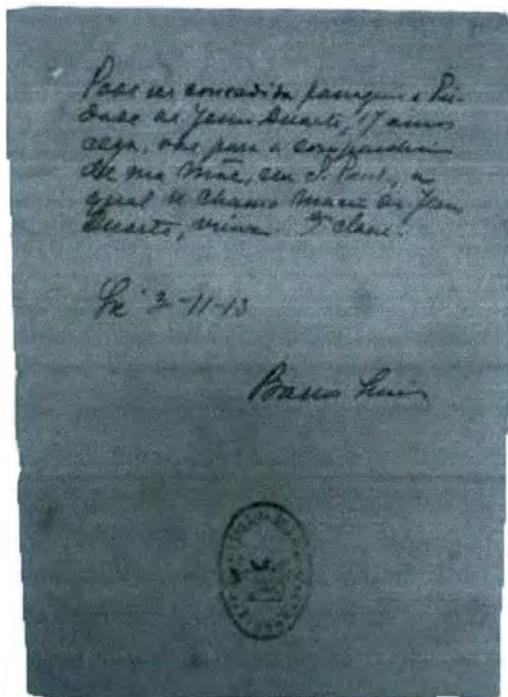 Pode ser concedida passagem a Pie-
dade de Jesus Duarte, 17 annos
cega, vae para a companhia
de sua mãe, em S. Paulo, a
qual se chama Maria de Jesus
Duarte, viuva. 3ª classe.
3-11-13
Barros